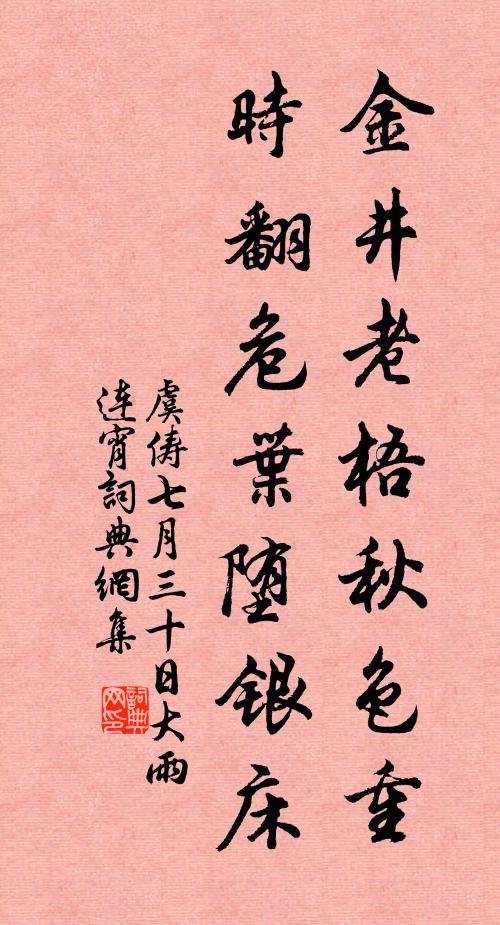 金井老梧秋色重
時翻危葉堕銀床
虞儔七月三十日大雨
連宵詞典網集
詞典
网印